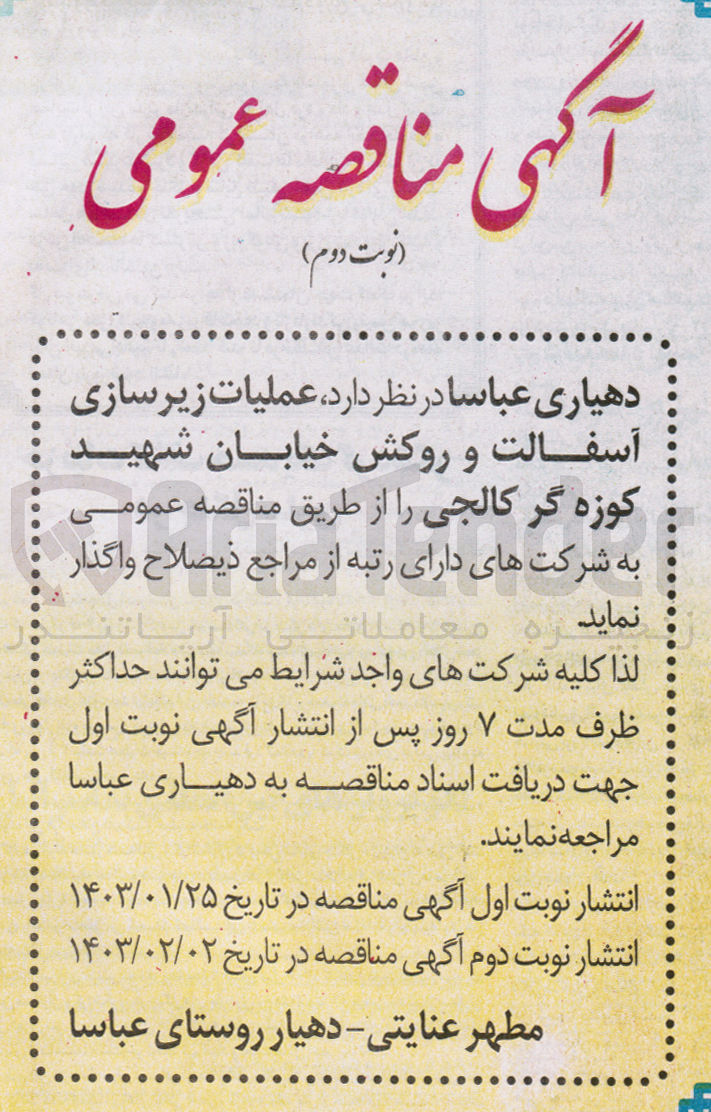 آگهی مناقصه عمومی
(نوبت دوم)
دهیاری عباسا در نظر دارد، عملیات زیرسازی
آسفالت و روکش خیابان شهید
کوزه گر کالجی را از طریق مناقصه عمومی
به شرکت های دارای رتبه از مراجع ذیصلاح واگذار
نماید.
لذا کلیه شرکت های واجد شرایط می توانند حداکثر
ظرف مدت ۷ روز پس از انتشار آگهی نوبت اول
جهت دریافت اسناد مناقصه به دهیاری عباسا
مراجعه نمایند.
انتشار نوبت اول آگهی مناقصه در تاریخ ۱۴۰۳/۰۱/۲۵
انتشار نوبت دوم آگهی مناقصه در تاریخ ۱۴۰۳/۰۲/۰۲
مطهر عنایتی - دهیار روستای عباسا
AriaTender
زنجیره معاملاتی آریاتندر